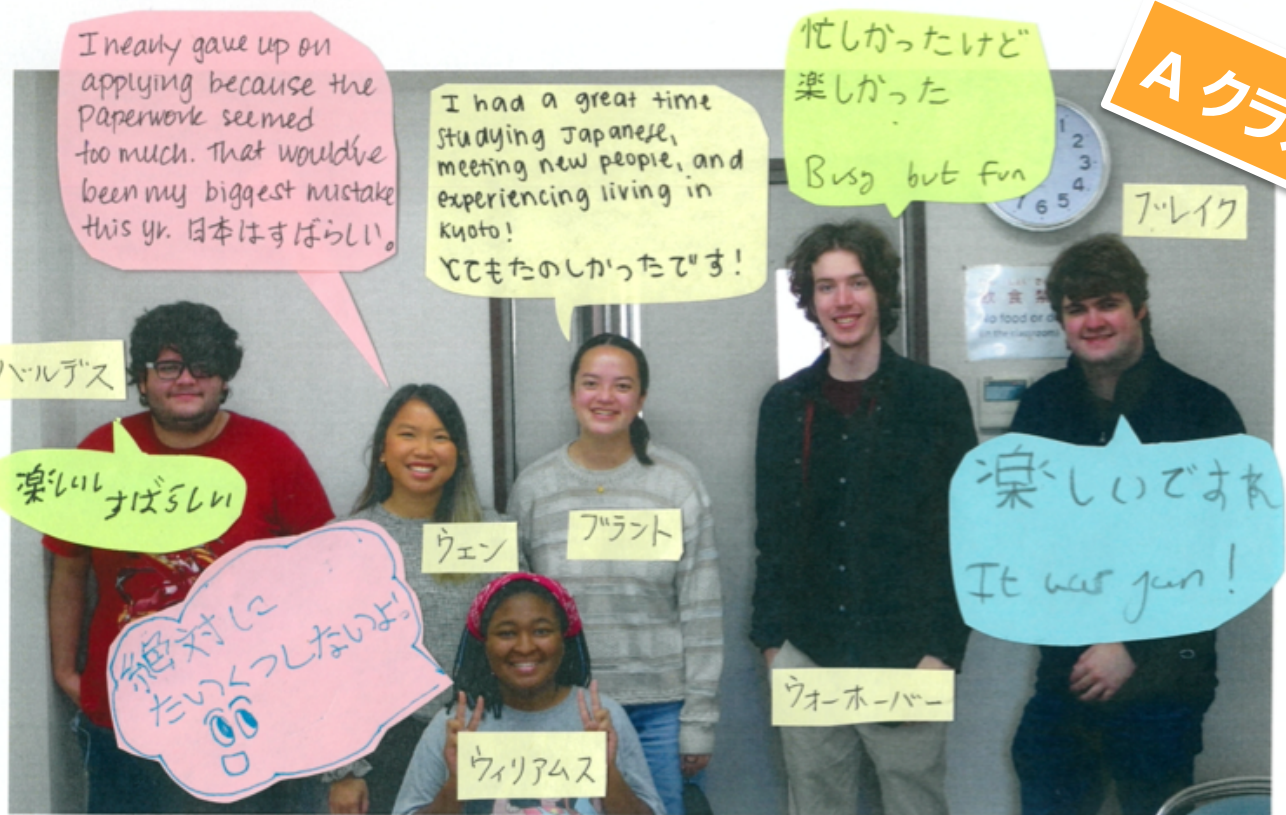 I nearly gave up on
applying because the
Paperwork seemed
too much. That would've
been my biggest mistake
this yr. 日本はすばらしい。
I had a great time
studying Japanese,
meeting new people, and
experiencing living in
Kyoto!
とてもたのしかったです!
忙しかったけど
楽しかった
Busy but fun
Aクラ
1
2
3
4
5
6
7
ブレイク
飲食禁
No food or d
in the classroom
バルデス
楽しいし
すばらしい
ウェン
ブラント
楽しいですね
It was fun!
絶対に
たいくつしないよ!
ウィリアムス
ウォーホーバー